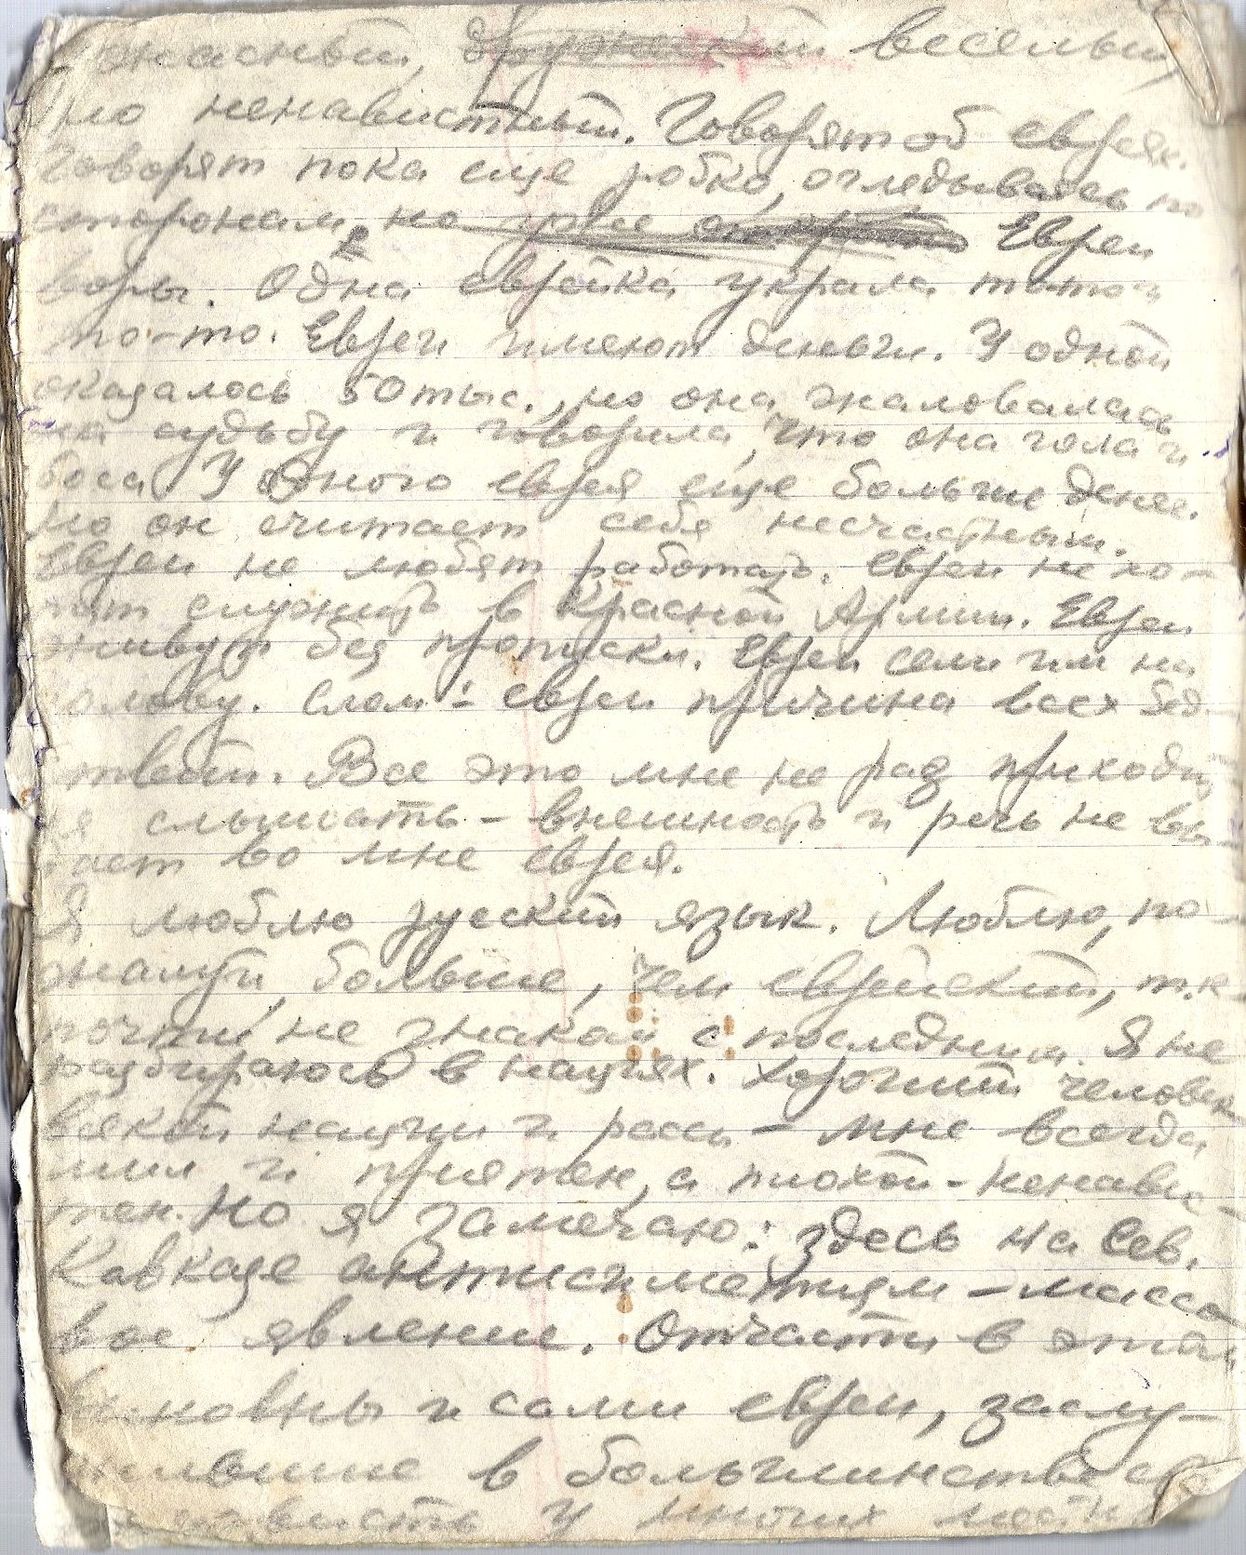 веселый,
но ненавистный. Говорят об евреях.
Говорят пока еще робко, оглядываясь по
сторонам, но уже Евреи
воры. Одна еврейка украла
то-то. Евреи имеют деньги. У одной
оказалось 50 тыс., но она жаловалась
на судьбу и говорила, что она гола и
боса. У одного еврея еще больше денег.
Но он считает себя несчастным.
Евреи не любят работать. Евреи не хо-
тят служить в Красной Армии. Евреи
живут без прописки. Евреи сели им на
голову. Слом: евреи причина всех бед-
ствий. Все это мне не раз приходит
ся слышать - внешность и речь не вы-
дает во мне еврея.
Я люблю русский язык. Люблю, по-
жалуй, больше, чем еврейский, т.к.
почти не знаком с последним. Я не
разбираюсь в нациях. Хороший человек
всякой нации и расы - мне всегда
мил и приятен, а плохой - ненавис-
тен. Но я замечаю: здесь на Сев.
Кавказе антисиметизм - массо
вое явление. Отчасти в этом
виновны и сами евреи, заслу-
жившие в большинстве
ненависть у многих